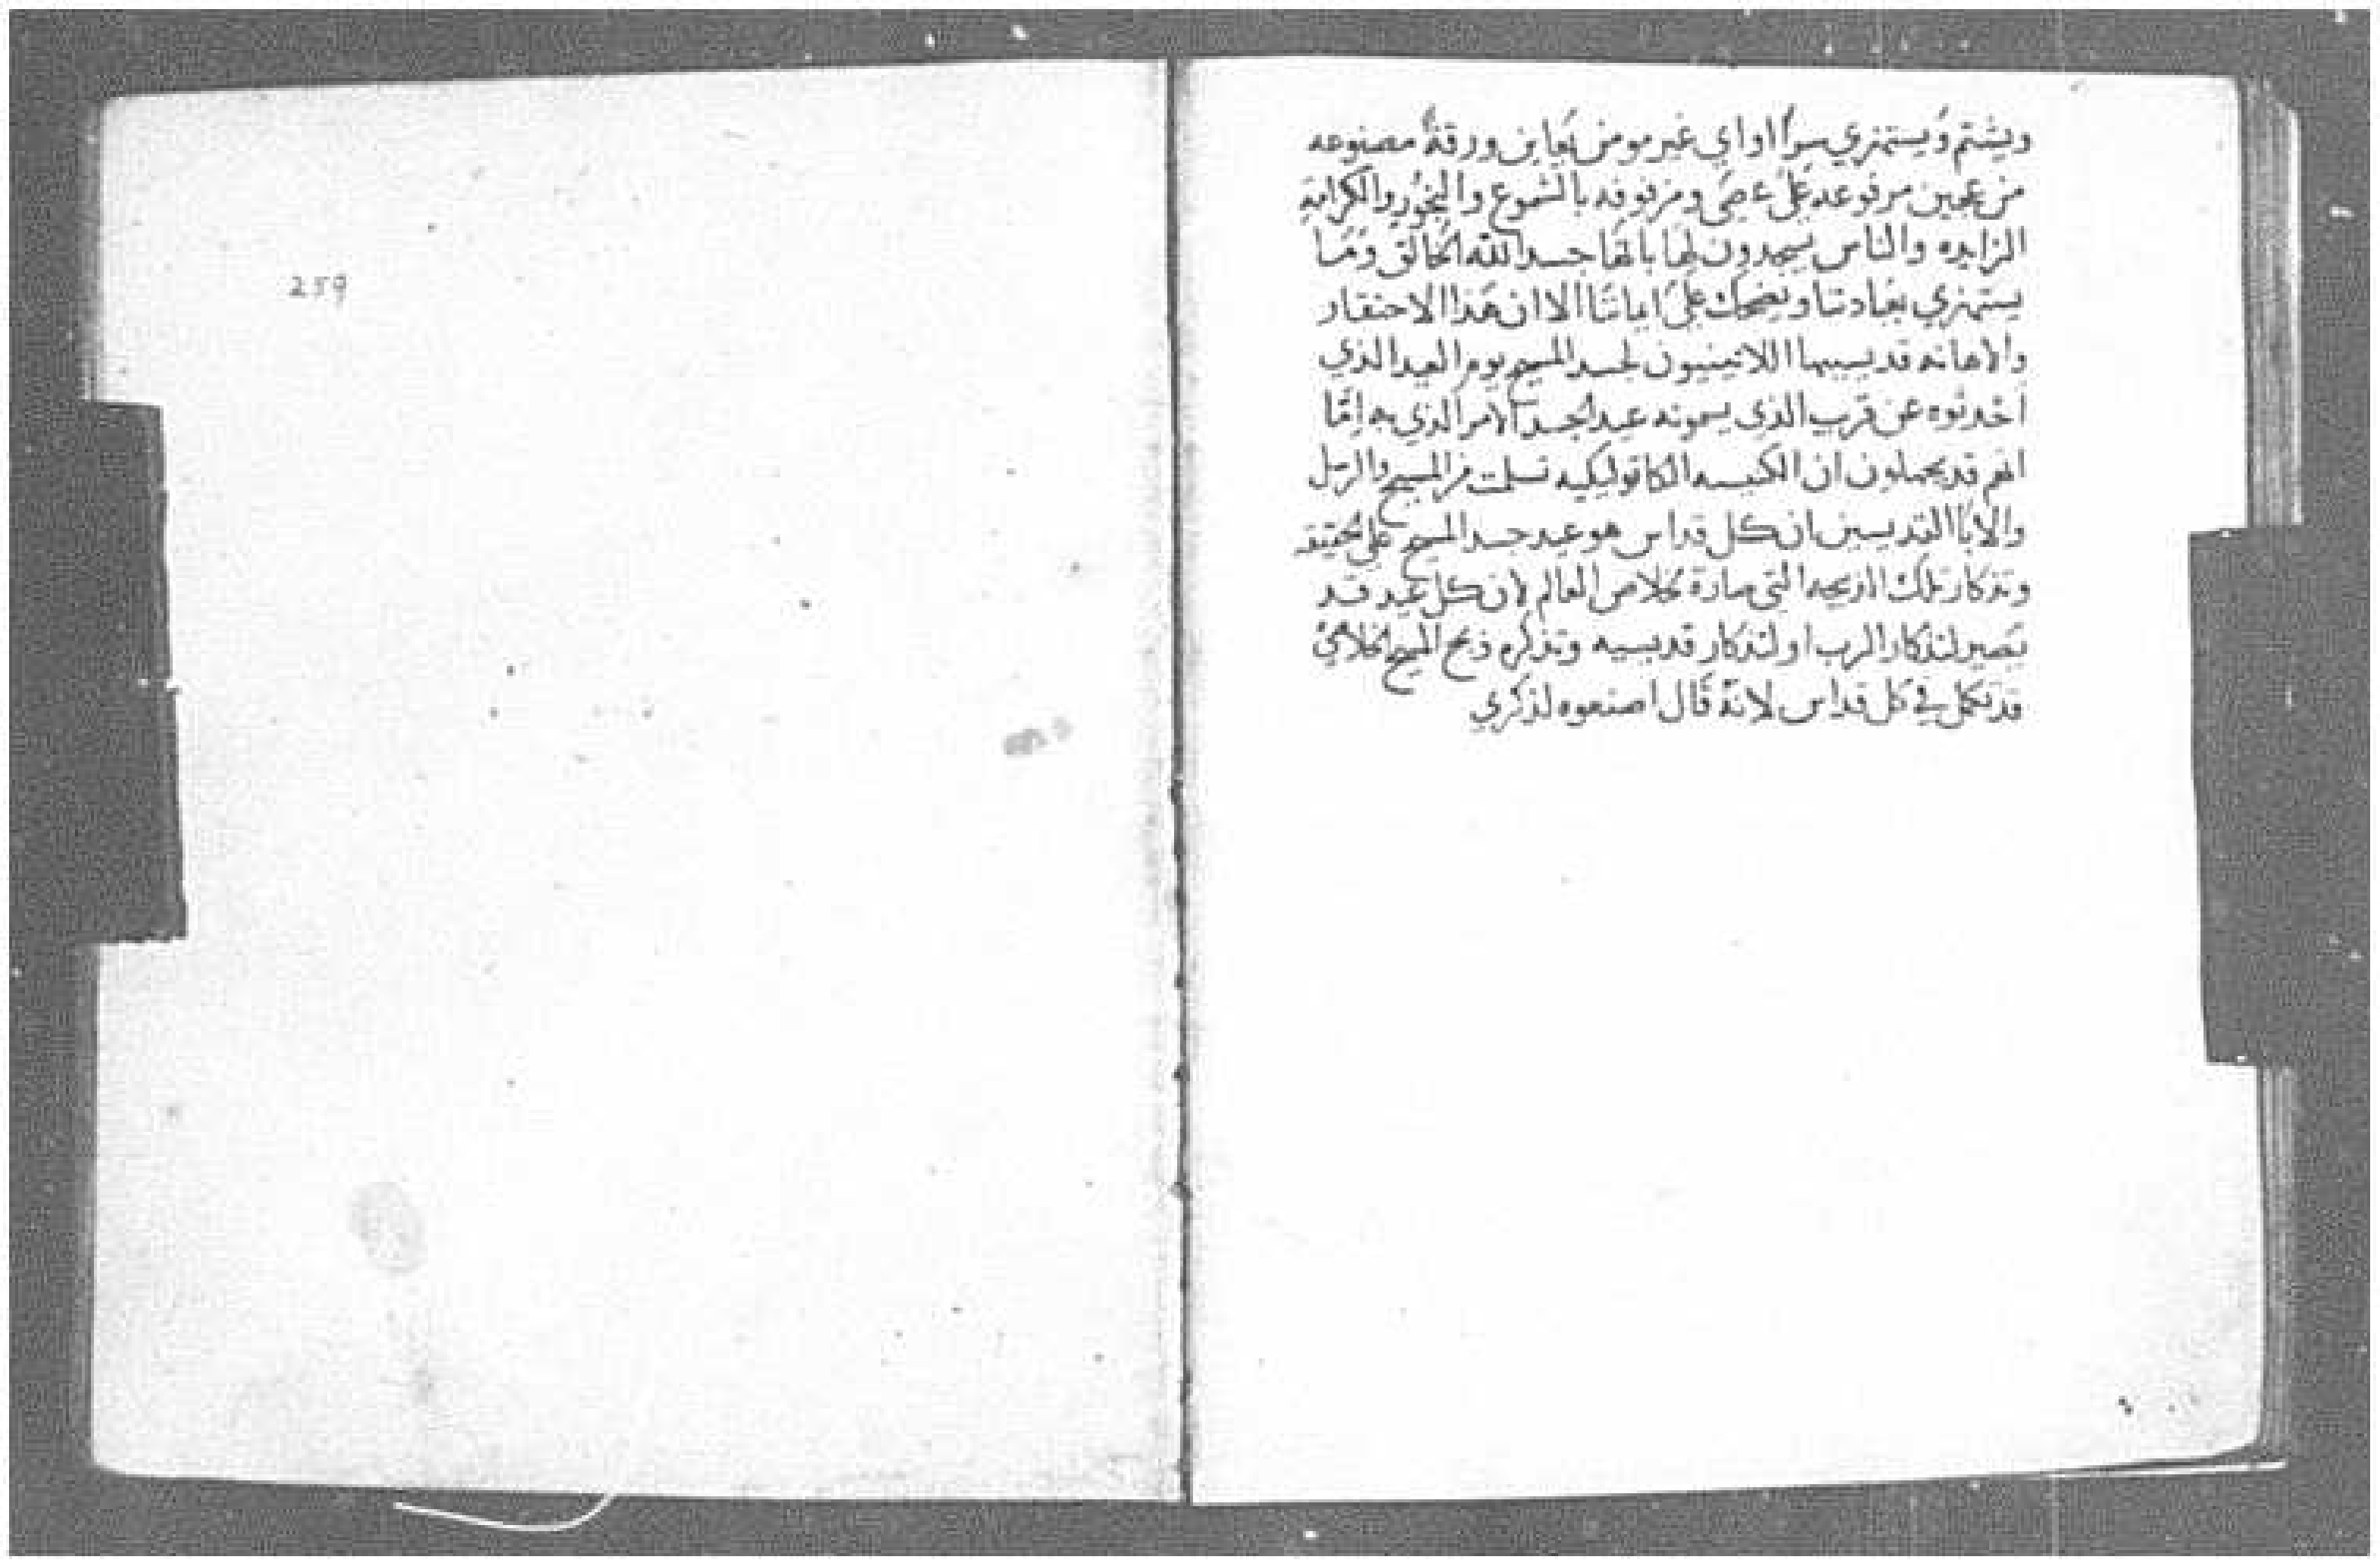 ويشتم ويستهزي سرًا او اي غير مومن يعاين ورقةً مصنوعه
من عجين مرفوعه علىَ عصَى ومزفوفه بالشموع والبخُور والكرامة
الزايده والناس يسجدون لهَا بانهَا جسد الله الخالق ومَا
يستهزي بعبادتنا ويضحك علىَ اماناتنَا الا ان هَذا الاحتقار
والاهانه قد يسببها اللاتينيون لجسد المسيح يوم العيد الذي
احدثوه عن قرب الذي يسمونه عيد الجسد الامر الذي به امَّا
انهم قد يجهلون ان الكنيسه الكاتوليكيه تسلمت من المسيح والرسل
والابَا القديسين ان كل قداس هو عيد جسد المسيح علي الحقيقه
وتذكار تلك الذبيحه التي صارة لخلاص العالم لان كل عيد قد
يصير لتذكار الرب او لتذكار قديسيه وتذكره ذبح المسيح الخلاصي
قد تكمل في كل قداس لانهُ قَال اصنعوه لذكري
259